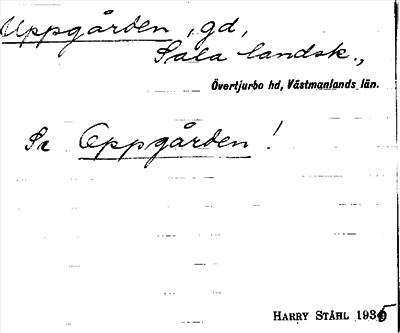 Uppgården, gd,
Sala landsk.,
Övertjurbo hd, Västmanlands län.
Se Oppgården!
HARRY STÅHL 1935